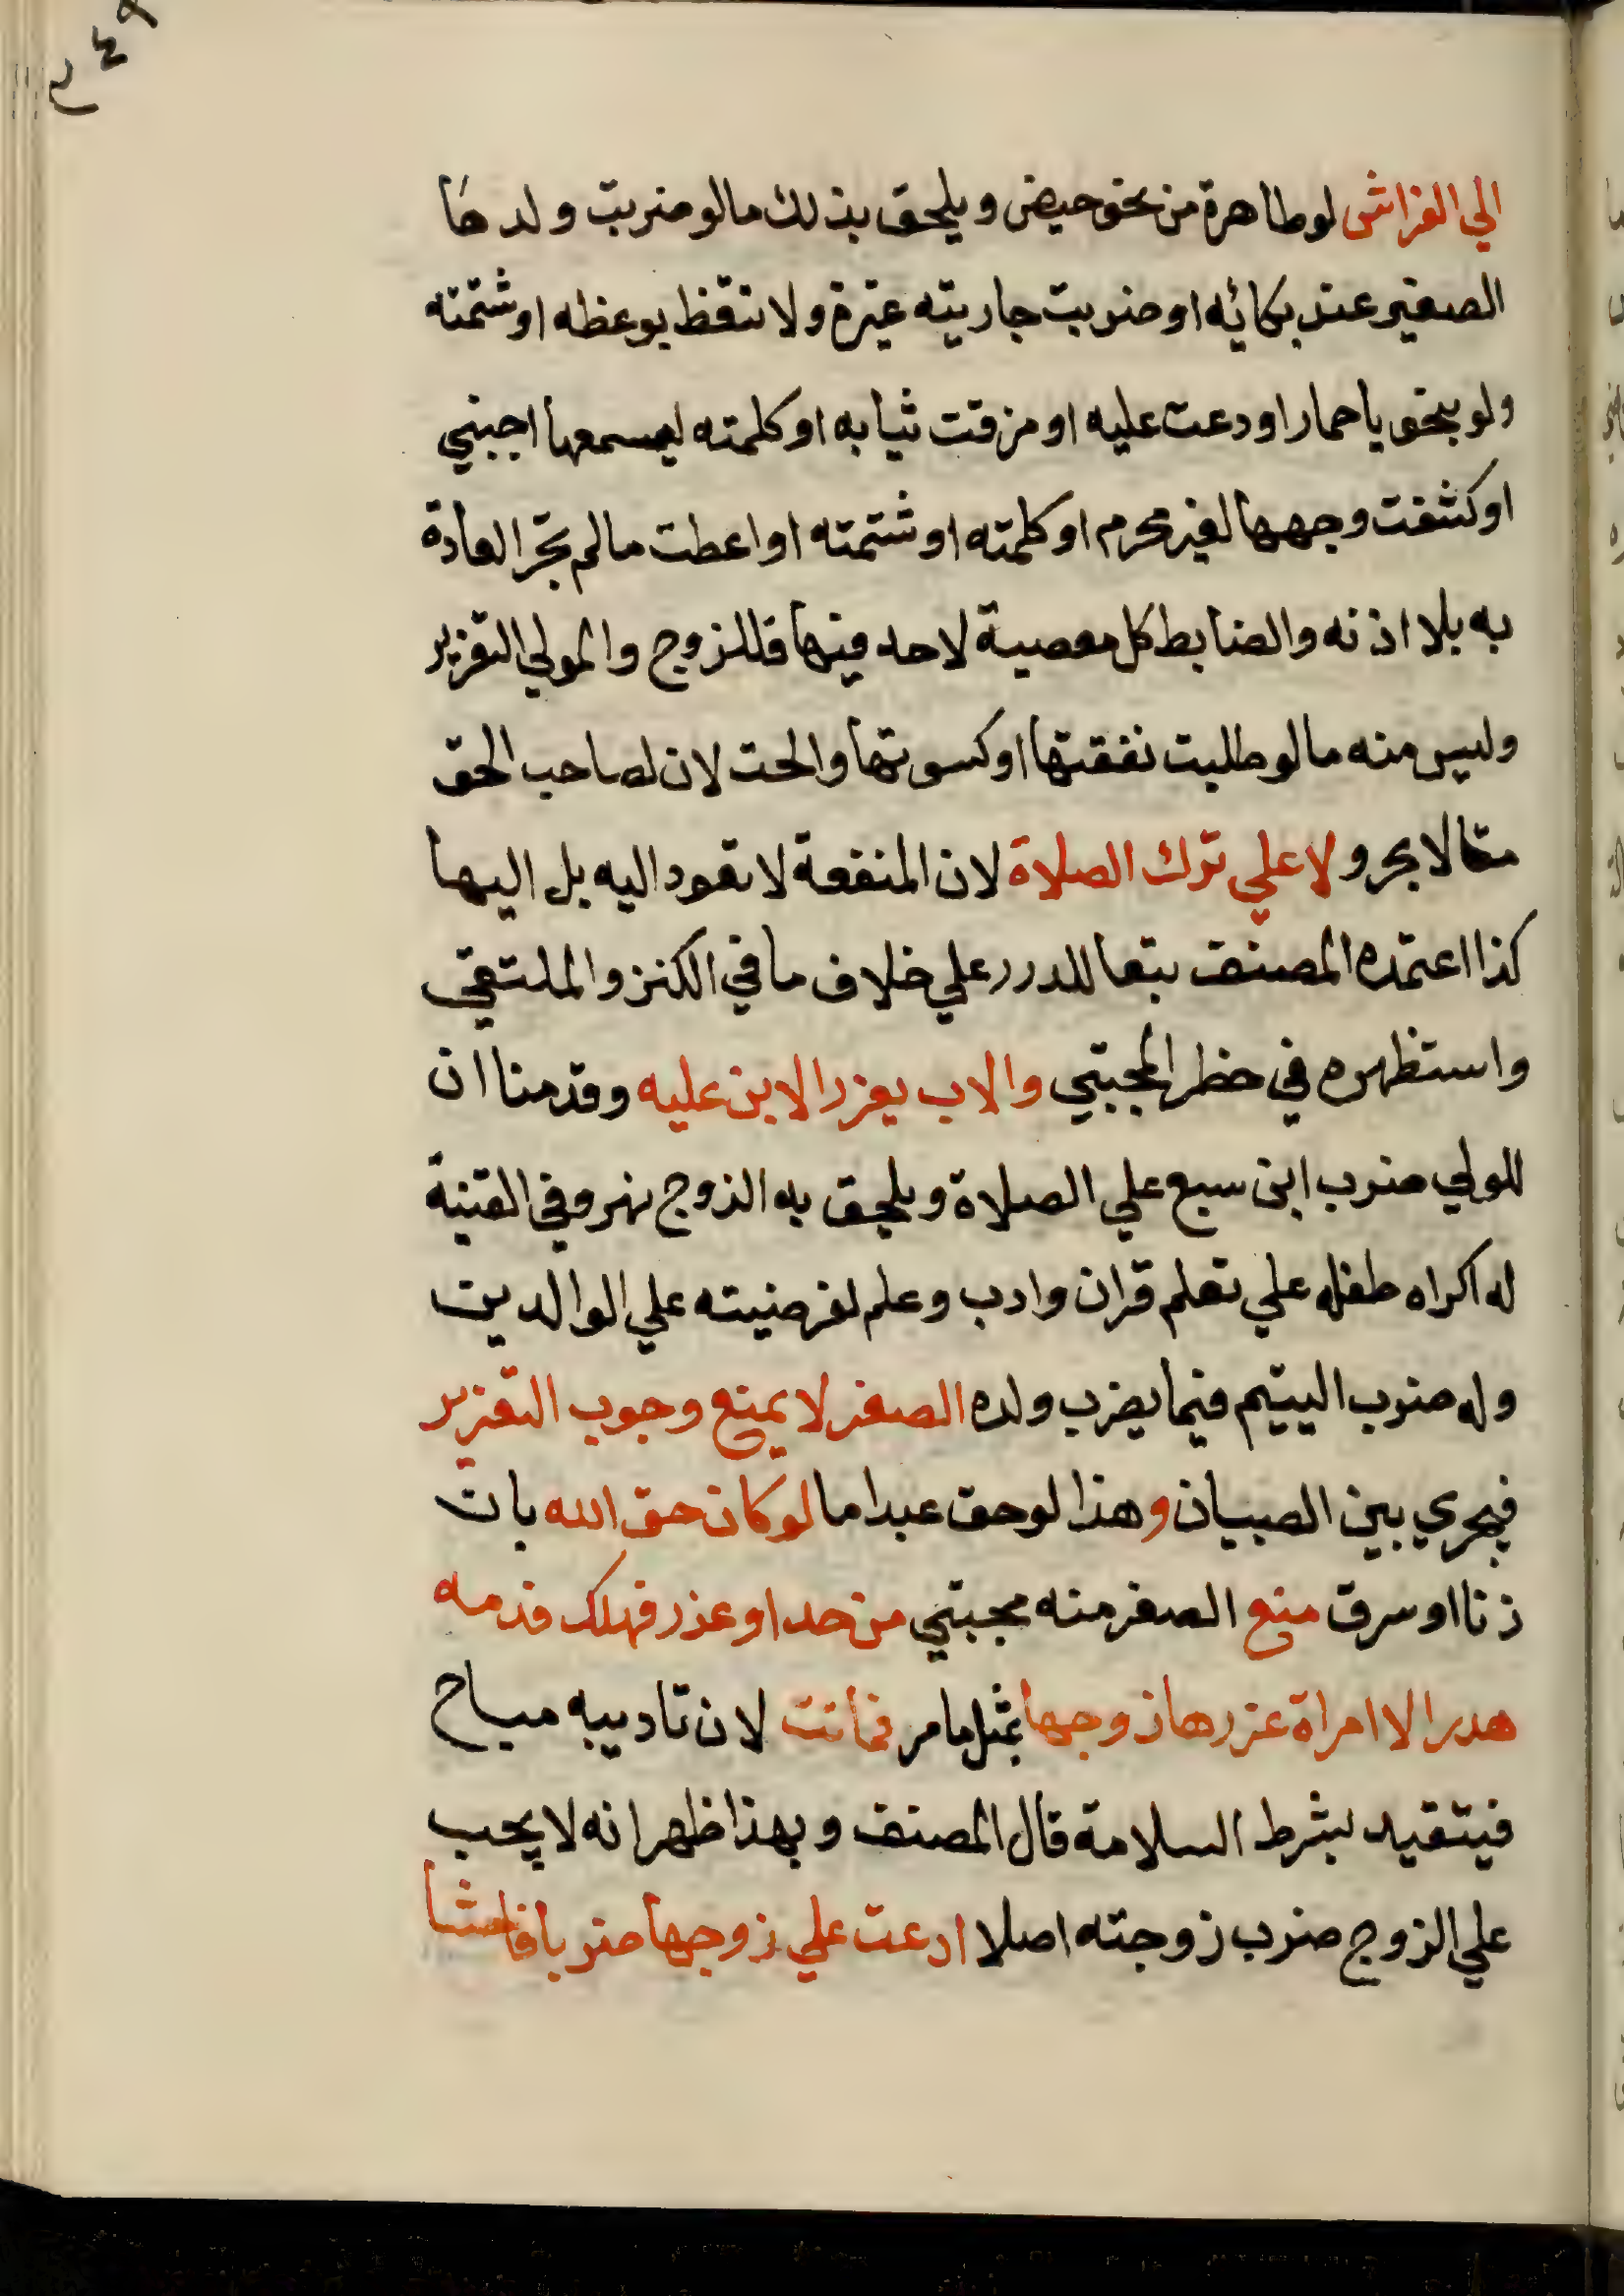 ٢٤٩
الي الفراش لو طاهرة من نحو حيض ويلحق بذلك مالو ضربت ولدها
الصغير عند بكائه او ضربت جاريته غيرة ولا تتعظ بوعظه او شتمته
ولو بنحو يا حمار او دعت عليه او مزقت ثيابه او كلمته ليسمعها اجبني
او كشفت وجهها لغير محرم او كلمته او شتمته او اعطت مالم تجر العادة
به بلا اذنه والضابط كل معصية لا حد فيها فللزوج والمولي التعزير
وليس منه مالو طلبت نفقتها او كسوتها والحت لان لصاحب الحق
مقالا بحر ولا علي ترك الصلاة لان المنفعة لا تعود اليه بل اليها
كذا اعتمده المصنف تبعا للدرر علي خلاف ما في الكنز والملتقي
واستظهره في حظر المجتبي والاب يعزر الابن عليه وقدمنا ان
للولي ضرب ابن سبع علي الصلاة ويلحق به الزوج نهر وفي القنية
له اكراه طفله علي تعلم قران وادب وعلم لفرضيته علي الوالدين
وله ضرب اليتيم فيما يضرب ولده الصغر لا يمنع وجوب التعزير
فيجري بين الصبيان وهذا لو حق عبد اما لو كان حق الله بان
زنا او سرق منع الصغر منه مجتبي من حد او عزر فهلك فدمه
هدر الا امراة عزرها زوجها بمثل مامر فماتت لان تاديبه مباح
فيتقيد بشرط السلامة قال المصنف وبهذا ظهر انه لا يجب
علي الزوج ضرب زوجته اصلا ادعت علي زوجها ضربا فاحشا